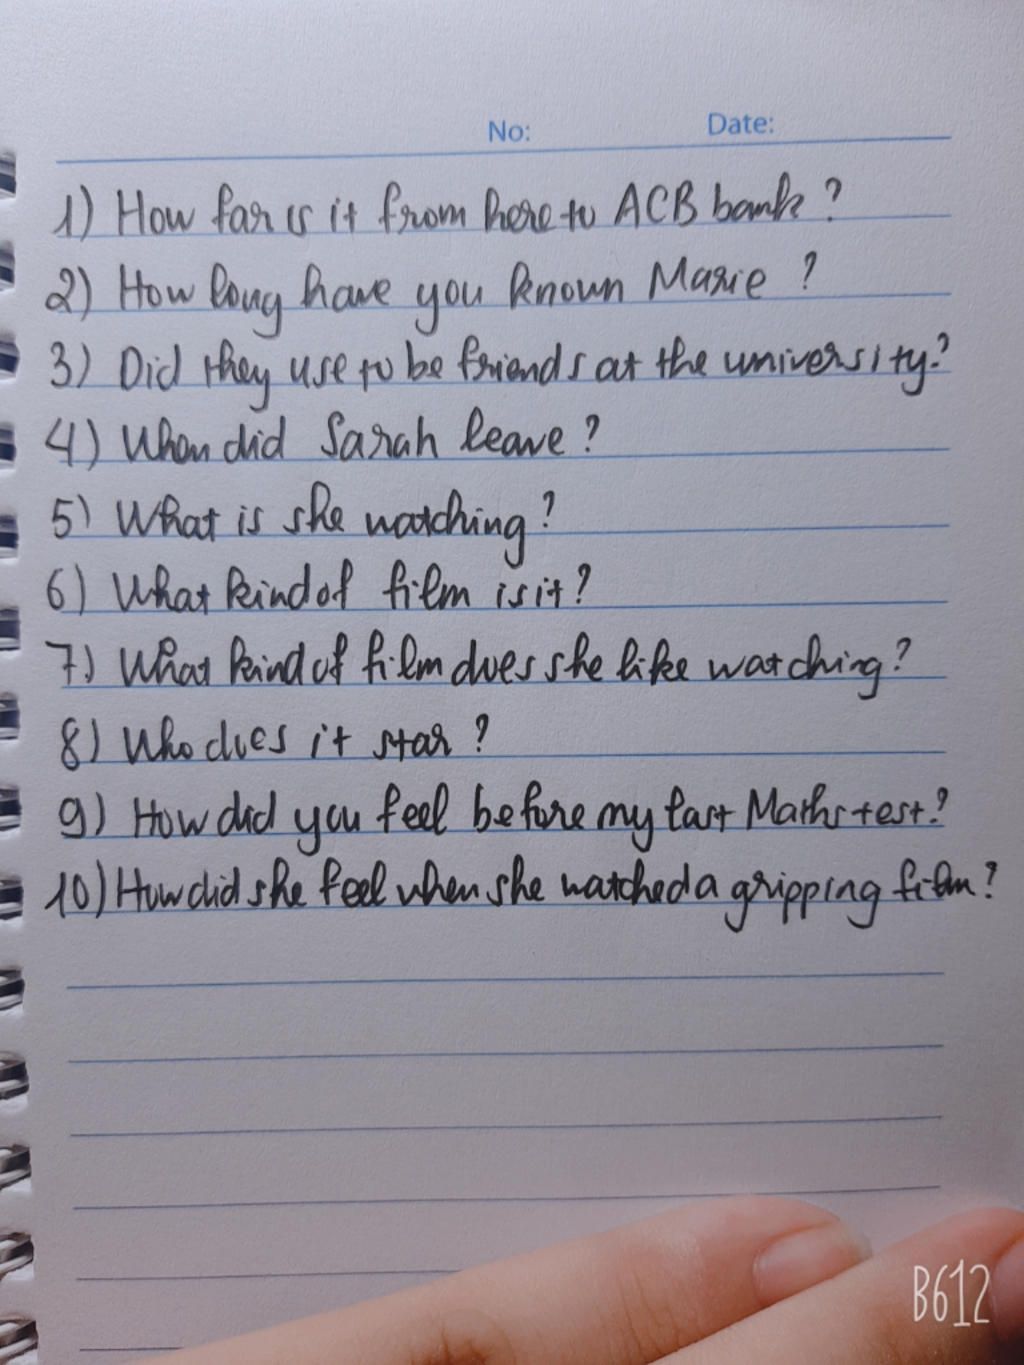 No: Date:
1) How far is it from here to ACB bank?
2) How long have you known Marie?
3) Did they use to be friends at the university?
4) When did Sarah leave?
5) What is she watching?
6) What kind of film is it?
7) What kind of film does she like watching?
8) Who does it star?
9) How did you feel before my last Maths test?
10) How did she feel when she watched a gripping film?
B612